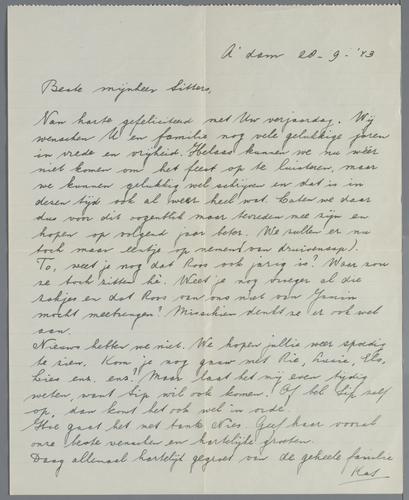 A'dam 20-9-'43
Beste mijnheer Sitters,
Van harte gefeliciteerd met Uw verjaardag. Wij
wenschen U en familie nog vele gelukkige jaren
in vrede en vrijheid. Helaas kunnen we nu weer
niet komen om het feest op te luisteren, maar
we kunnen gelukkig wel schrijven en dat is in
dezen tijd ook al weer heel wat. Laten we daar
dus voor dit oogenblik maar tevreden mee zijn en
hopen op volgend jaar beter. We zullen er nu
toch maar eentje op nemen (van druivensap).
To, weet je nog dat Roos ook jarig is? Waar zou
ze toch zitten hè. Weet je nog vroeger al die
zakjes en dat Roos van ons niet van
mocht meebrengen? Misschien denkt ze er ook wel
aan.
Nieuws hebben we niet. We hopen jullie weer spoedig
te zien. Kom je nog gauw met Rie, Lusie,
Lies enz. enz? Maar laat het mij even tijdig
weten, want Sip wil ook komen. Of bel Sip zelf
op, dan komt het ook wel in orde.
Hoe gaat het met tante Nies. Geef haar vooral
onze beste wenschen en hartelijke groeten.
Daag allemaal hartelijk gegroet van de geheele familie
Kas